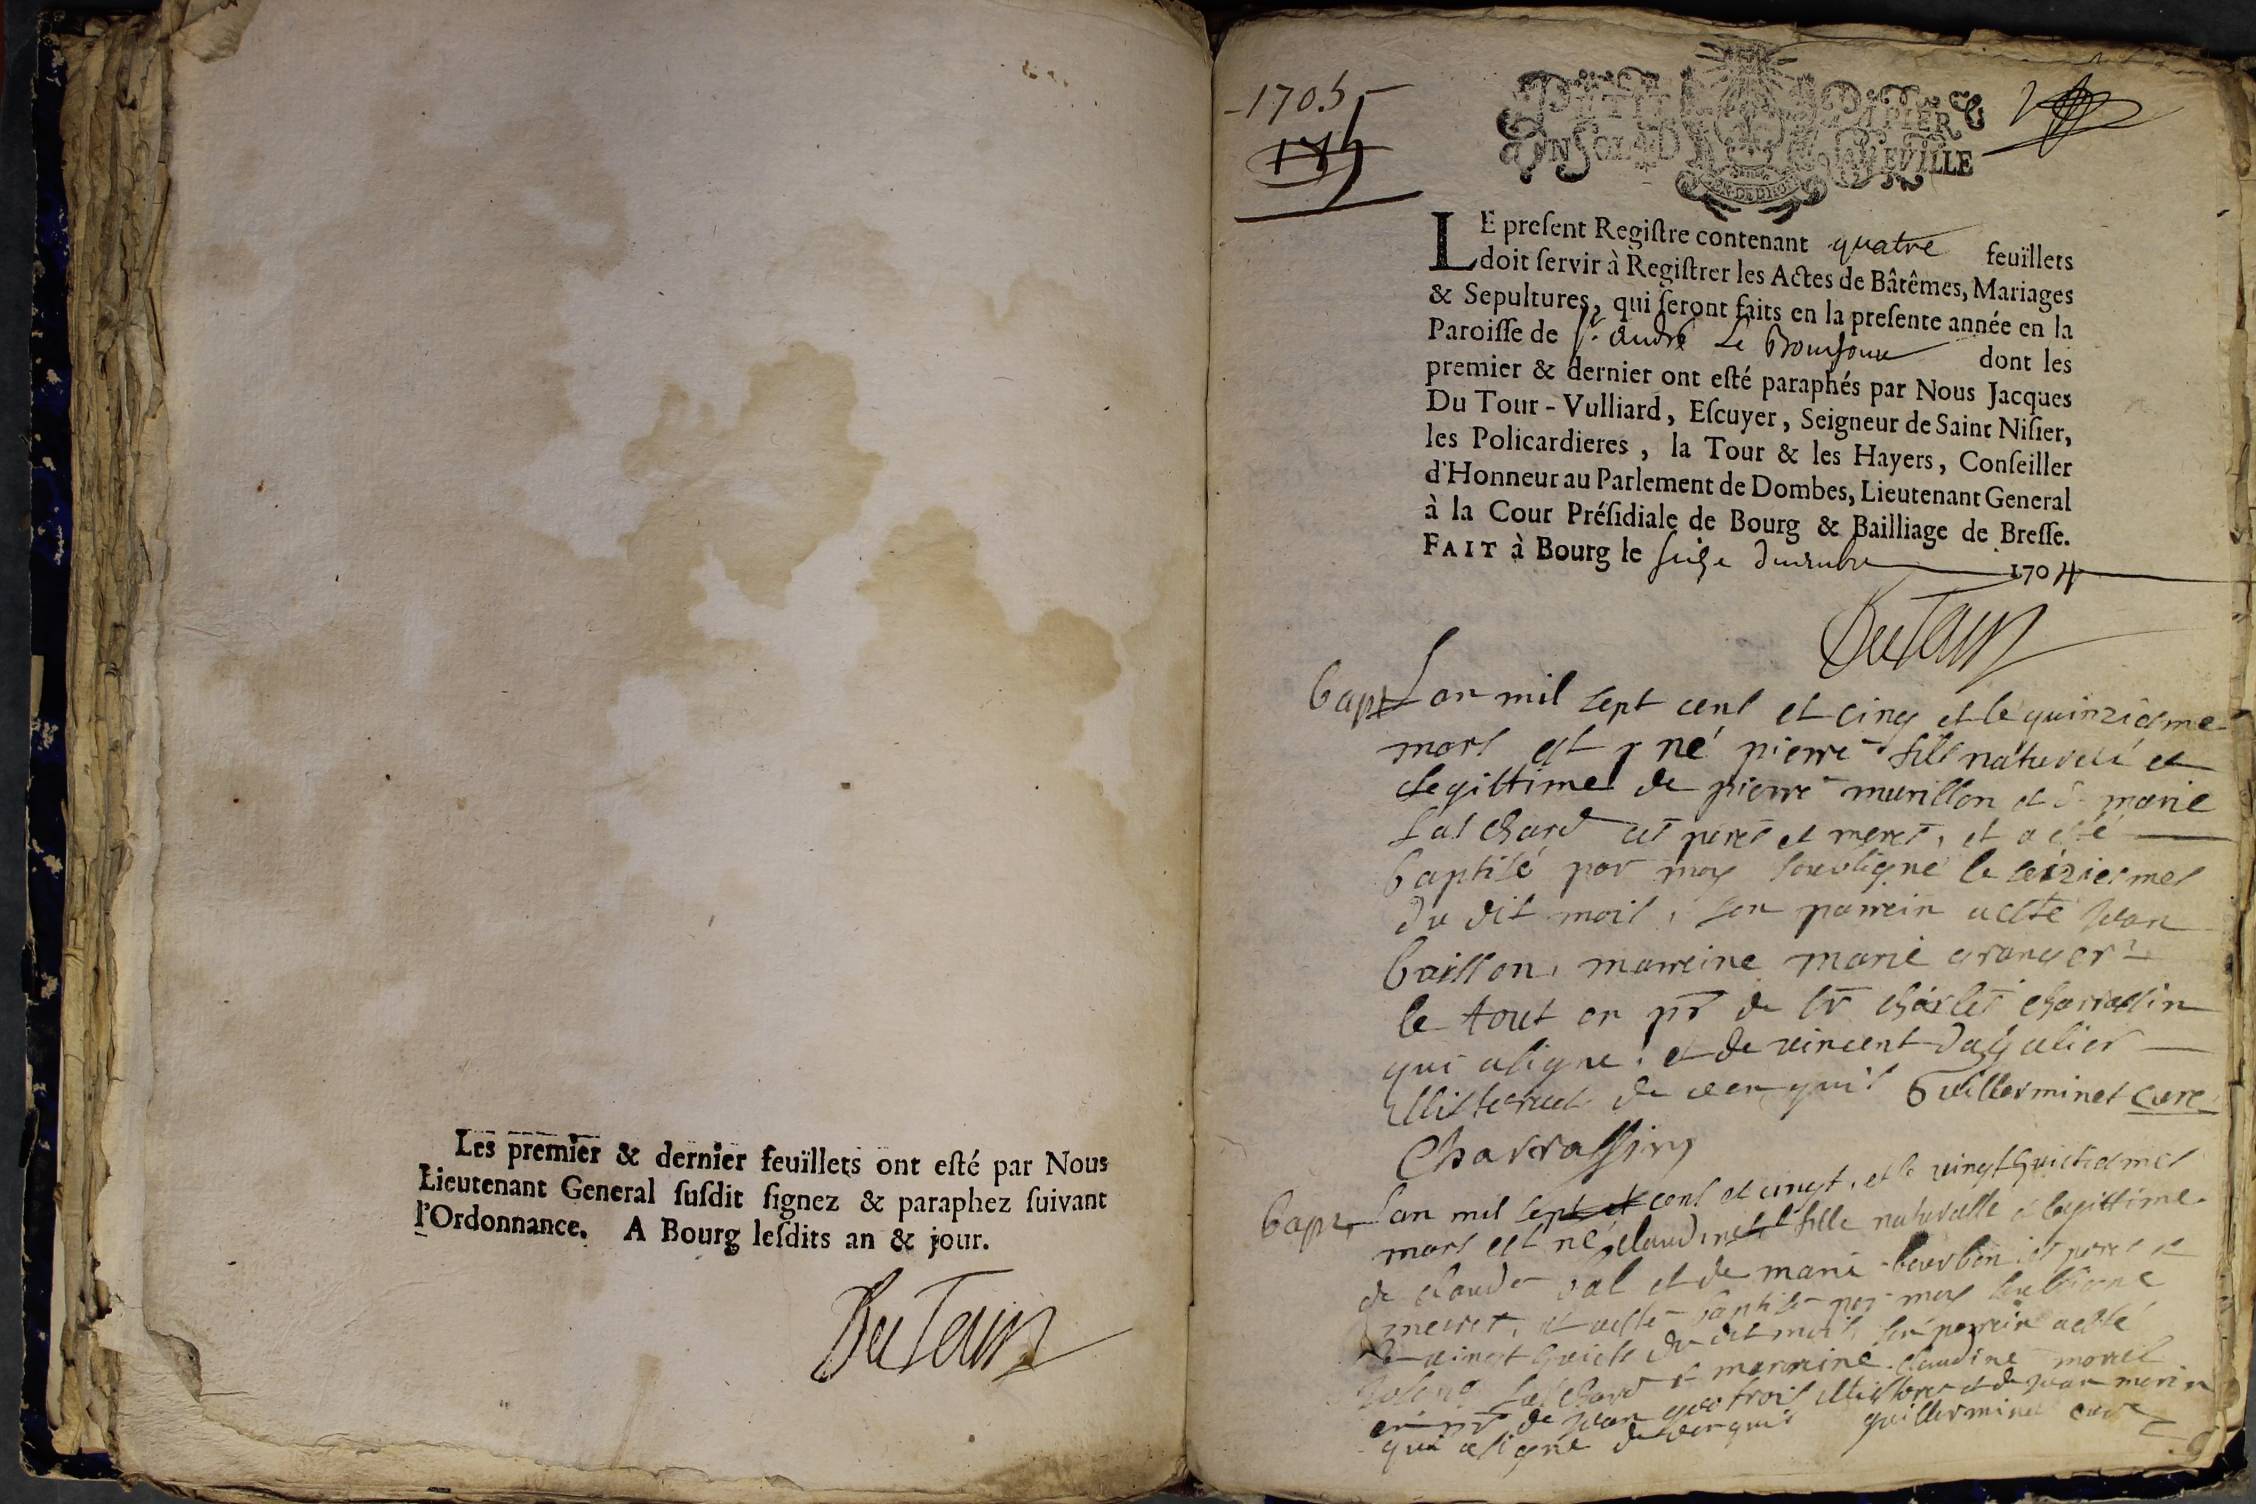 Les premier & dernier feüillets ont esté par Nous
Lieutenant General susdit signez & paraphez suivant
l'Ordonnance. A Bourg lesdits an & jour.
DuTour
1705
PETIT PAPIER
EN
LE present Registre contenant quatre feüillets
doit servir à Registrer les Actes de Bâtêmes, Mariages
& Sepultures, qui seront faits en la presente année en la
Paroisse de St. André Le dont les
premier & dernier ont esté paraphés par Nous Jacques
Du Tour-Vulliard, Escuyer, Seigneur de Saint Nisier,
les Policardieres, la Tour & les Hayers, Conseiller
d'Honneur au Parlement de Dombes, Lieutenant General
à la Cour Présidiale de Bourg & Bailliage de Bresse.
FAIT à Bourg le seize 1704
DuTour
bapt Lan mil sept cent et cinq et le quinziesme
mars est né pierre fils naturel et
legittime de pierre murillon et de marie
ces peres et meres, et a esté
baptisé par moy soubsigné le seiziesmes
du dit mois, son parrein a esté jean
marreine marie
le tout en pr de sr charles charrassin
qui a signé, et de vincent
de ce enquis Guillerminet curé
Charrassin
bapt Lan mil sept cent et cinqt, et le vingt huictiesmes
mars est né claudine fille naturelle et legittime
de claude et de marie bourbon ces peres et
meres, et a esté baptisé par moy soubsigné
le vingt huict du dit mois son parrein a esté
et marreine claudine morel
en pr de jean et de jean morin
qui a signé de ce enquis guillerminet curé